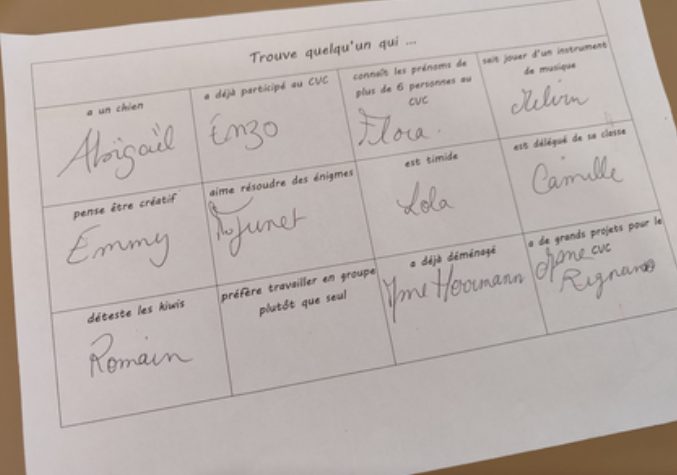 Trouve quelqu'un qui ...
a un chien
Abigaël
a déjà participé au CVC
Enzo
connaît les prénoms de
plus de 6 personnes au
CVC
Flora.
sait jouer d'un instrument
de musique
Melvin
pense être créatif
Emmy
aime résoudre des énigmes
est timide
Lola
est délégué de sa classe
Camille
déteste les kiwis
Romain
préfère travailler en groupe
plutôt que seul
a déjà déménagé
Mme Herrmann
a de grands projets pour le
CVC
Mme